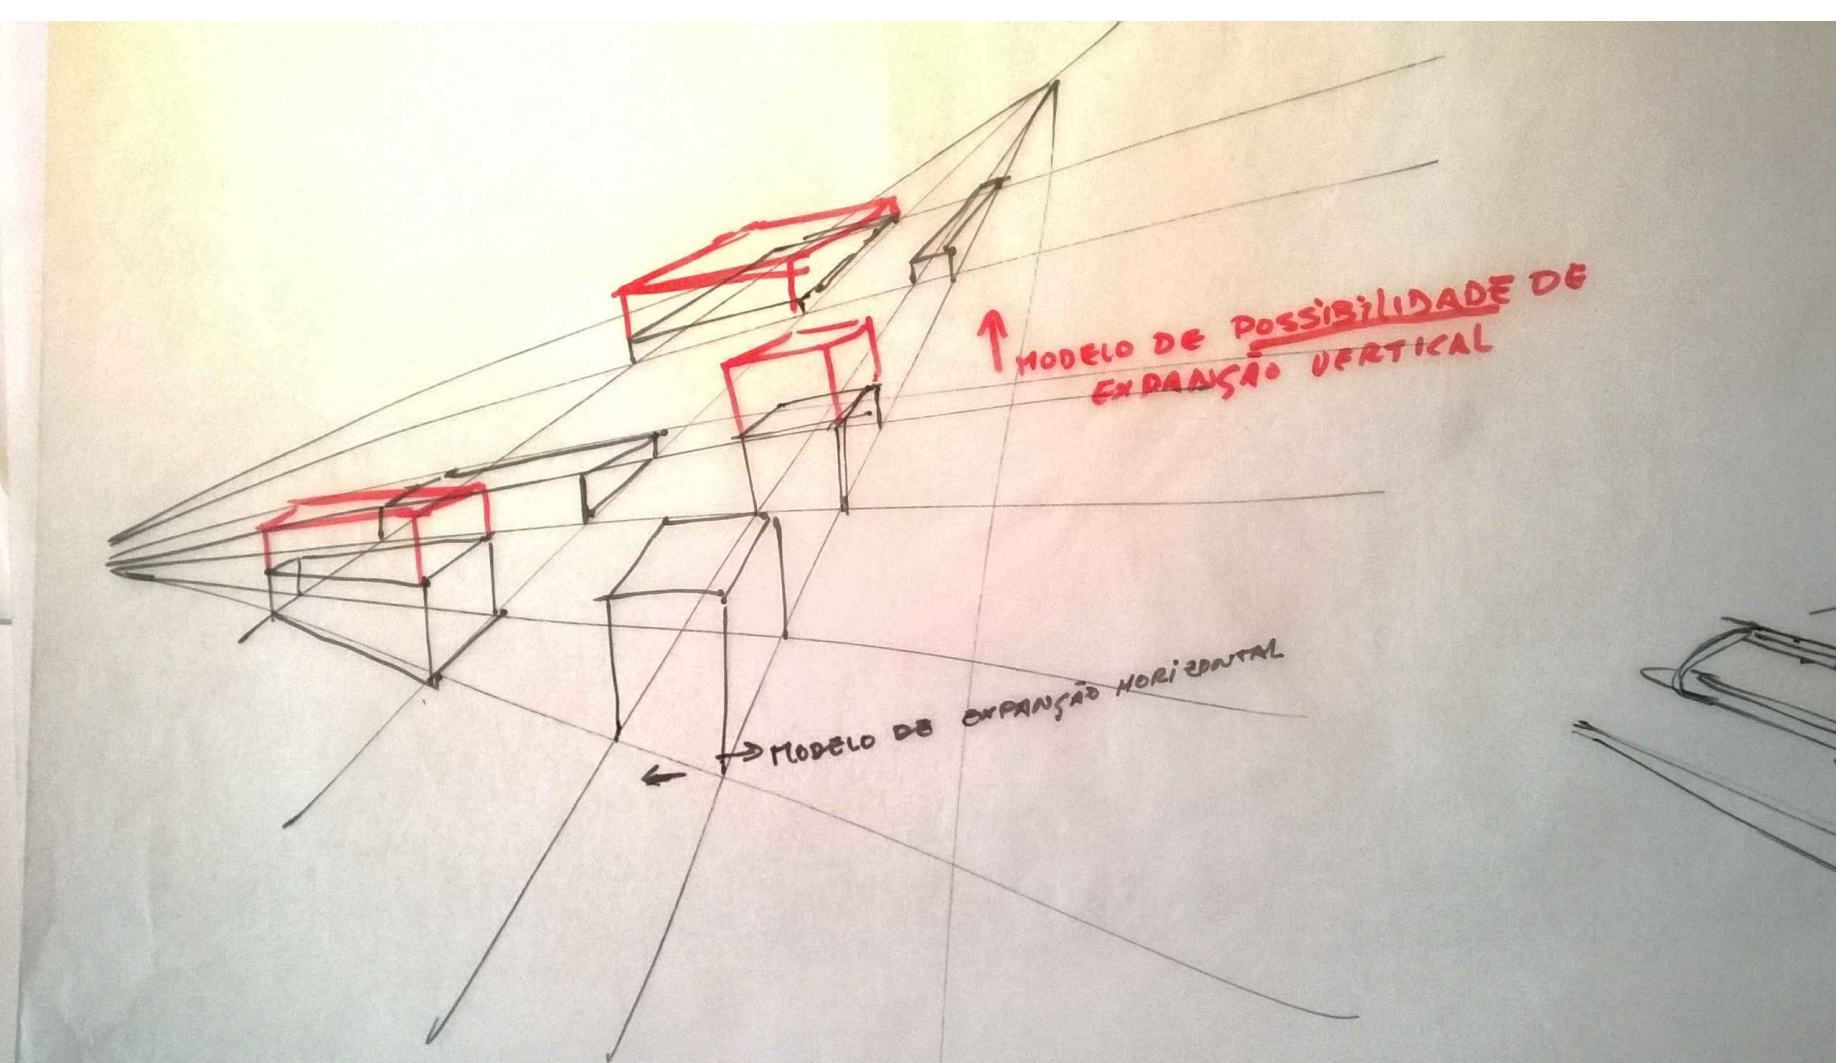 ↑ MODELO DE POSSIBILIDADE DE
EXPANSÃO VERTICAL
MODELO DE EXPANSÃO HORIZONTAL